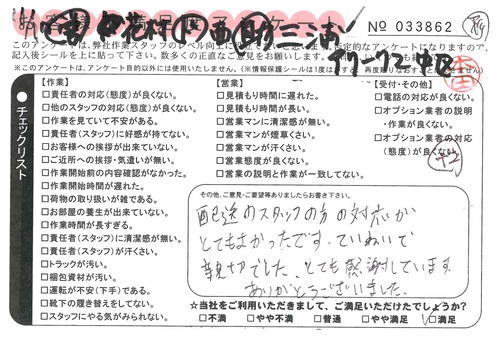 № 033862
このアンケートは、弊社作業スタッフのレベル向上に
記入後シールを上に貼って下さい。数多くの正直なご意見をお願いします。
※このアンケートは、アンケート目的以外には使用いたしません。(※情報保護シールは1度はがすと、再度貼りなおすことは
チェックリスト
【作業】
□責任者の対応(態度)が良くない。
□他のスタッフの対応(態度)が良くない。
□作業を見ていて不安がある。
□責任者(スタッフ)に好感が持てない。
□お客様への挨拶が出来ていない。
□ご近所への挨拶・気遣いが無い。
□作業開始前の内容確認がなかった。
□作業開始時間が遅れた。
□荷物の取り扱いが雑である。
□お部屋の養生が出来ていない。
□作業時間が長すぎる。
□責任者(スタッフ)に清潔感が無い。
□責任者(スタッフ)が汗くさい。
□トラックが汚い。
□梱包資材が汚い。
□運転が不安(下手)である。
□靴下の履き替えをしてない。
□スタッフにやる気がみられない。
【営業】
□見積もり時間に遅れた。
□見積もり時間が長い。
□営業マンに清潔感が無い。
□営業マンが煙草くさい。
□営業マンが汗くさい。
□営業態度が良くない。
□営業の説明と作業が一致してない。
【受付・その他】
□電話の対応が良くない。
□オプション業者の説明
・作業が良くない。
□オプション業者の対応
(態度)が良くない。
その他、ご意見・ご要望等ありましたらお書き下さい。
配送のスタッフの方の対応が
とてもよかったです。ていねいで
親切でした。とても感謝しています。
ありがとうございました。
☆当社をご利用いただきまして、ご満足いただけたでしょうか?
□不満 □やや不満 □普通 □やや満足 □満足